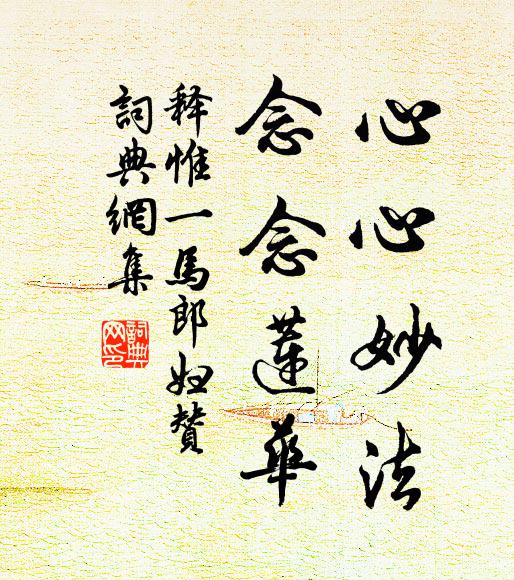 心心妙法
念念蓮華
释惟一馬郎婦赞
詞典網集
詞典网印